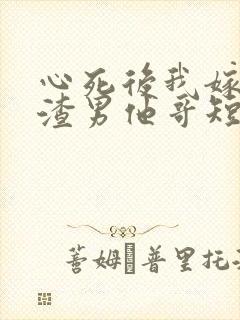 心死後我嫁
渣男他哥短
蓍姆·普里托